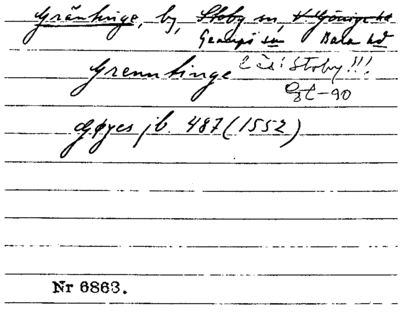 Gränhinge, by, Stoby sn, V Göinge hd
Genarps sn Bara hd
Grennhinge 2 i Stoby !!!
-90
Gøyes jb. 487 (1552)
Nr 6863.